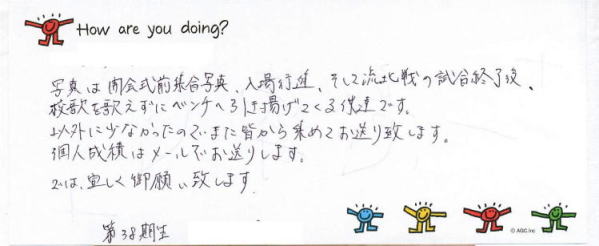 How are you doing?
写真は開会式前集合写真、入場行進、そして流北戦の試合終了後、
校歌を歌えずにベンチへ引き揚げてくる僕達です。
以外に少なかったのでまた皆から集めてお送り致します。
個人成績はメールでお送りします。
では、宜しく御願い致します
第38期生
© AGC.Inc